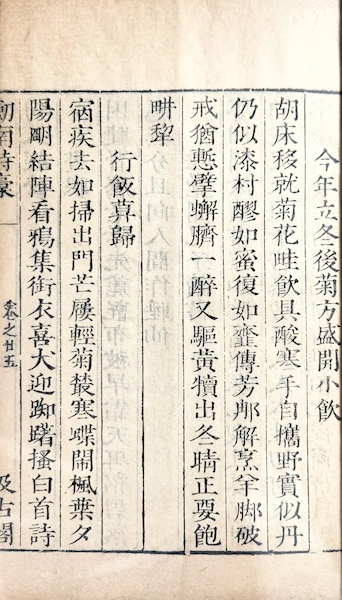 今年立冬後菊方盛開小飲
胡床移就菊花畦飲具酸寒手自攜野實似丹
仍似漆村醪如蜜復如虀傳芳那解烹羊脚破
戒猶慙擘蠏臍一醉又驅黃犢出冬晴正要飽
畊犂
行飯暮歸
宿疾去如掃出門芒屩輕菊叢寒蝶鬧楓葉夕
陽明結陣看鴉集銜衣喜犬迎踟躇搔白首詩
劍南詩稾
卷之廿五
汲古閣